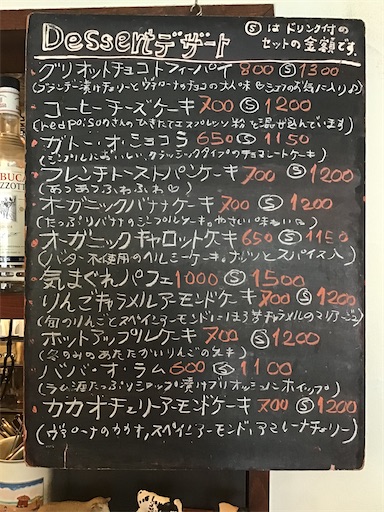 Dessertデザート
Ⓢは ドリンク付の
セットの金額です。
グリオットチョコトフィーパイ 800 Ⓢ 1300
(ブランデー漬けチェリーとヴァローナのチョコの大人味
コーヒーチーズケーキ 700 Ⓢ 1200
(redpoisonさんのひきたてエスプレッソ粉を混ぜ込んでいます)
ガトー・オ・ショコラ 650 Ⓢ 1150
(シンプルにおいしい クラシックタイプのチョコレートケーキ)
フレンチトーストパンケーキ 700 Ⓢ 1200
(あつあつふわふわ♡)
オーガニックバナナケーキ 700 Ⓢ 1200
(たっぷりバナナのシンプルケーキ。やさしい味わい
オーガニックキャロットケーキ 650 Ⓢ 1150
(バター不使用のヘルシーケーキ。ナッツとスパイス入)
気まぐれパフェ 1000 Ⓢ 1500
りんごキャラメルアーモンドケーキ 700 Ⓢ 1200
(旬のりんごとスペインアーモンドにほろ苦キャラメルのマリアージュ)
ホットアップルケーキ 700 Ⓢ 1200
(冬のみのあたたかいりんごのケーキ)
ババ・オ・ラム 600 Ⓢ 1100
(ラム酒たっぷりシロップ漬けブリオッシュ ホイップ)
カカオチェリーアーモンドケーキ 700 Ⓢ 1200
(ヴァローナのカカオ, スペインアーモンド, アマレーナチェリー)